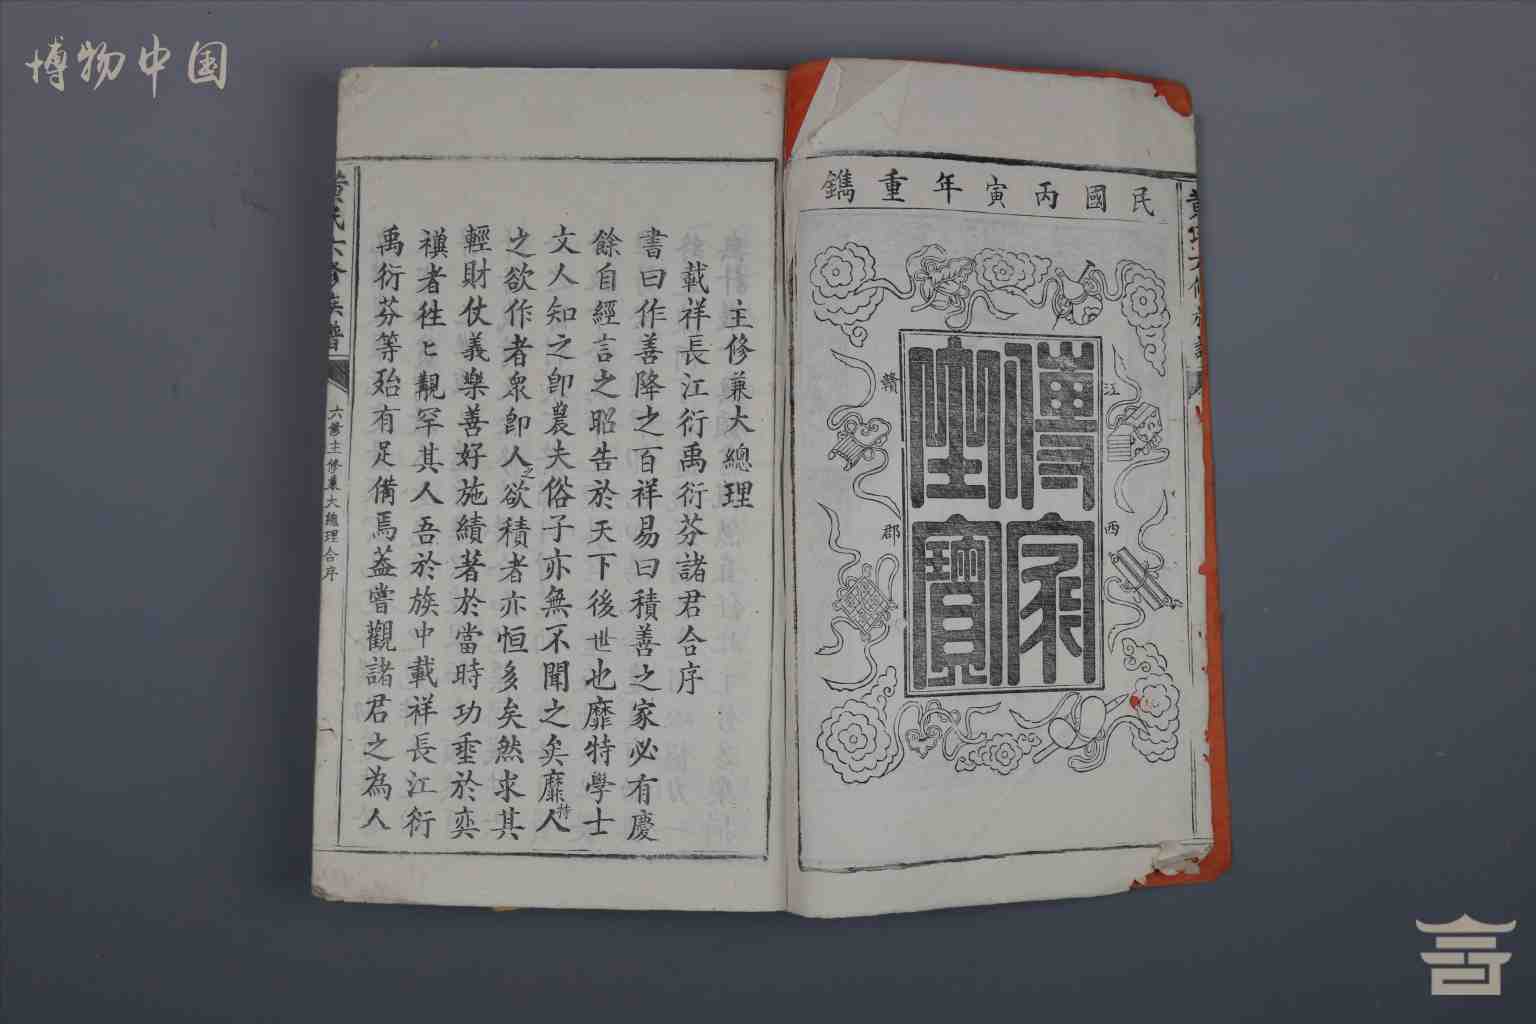 博物中国
民國丙寅年重鐫
江西
贛郡
傳家
至寶
主修兼大總理
載祥長江衍禹衍芬諸君合序
書曰作善降之百祥易曰積善之家必有慶
餘自經言之昭告於天下後世也靡特學士
文人知之卽農夫俗子亦無不聞之矣靡特人
之欲作者衆卽人之欲積者亦恒多矣然求其
輕財仗義樂善好施績著於當時功垂於奕
禩者徃匕覯罕其人吾於族中載祥長江衍
禹衍芬等殆有足備焉葢嘗觀諸君之為人
黄氏六修族譜
六修主修兼大總理合序